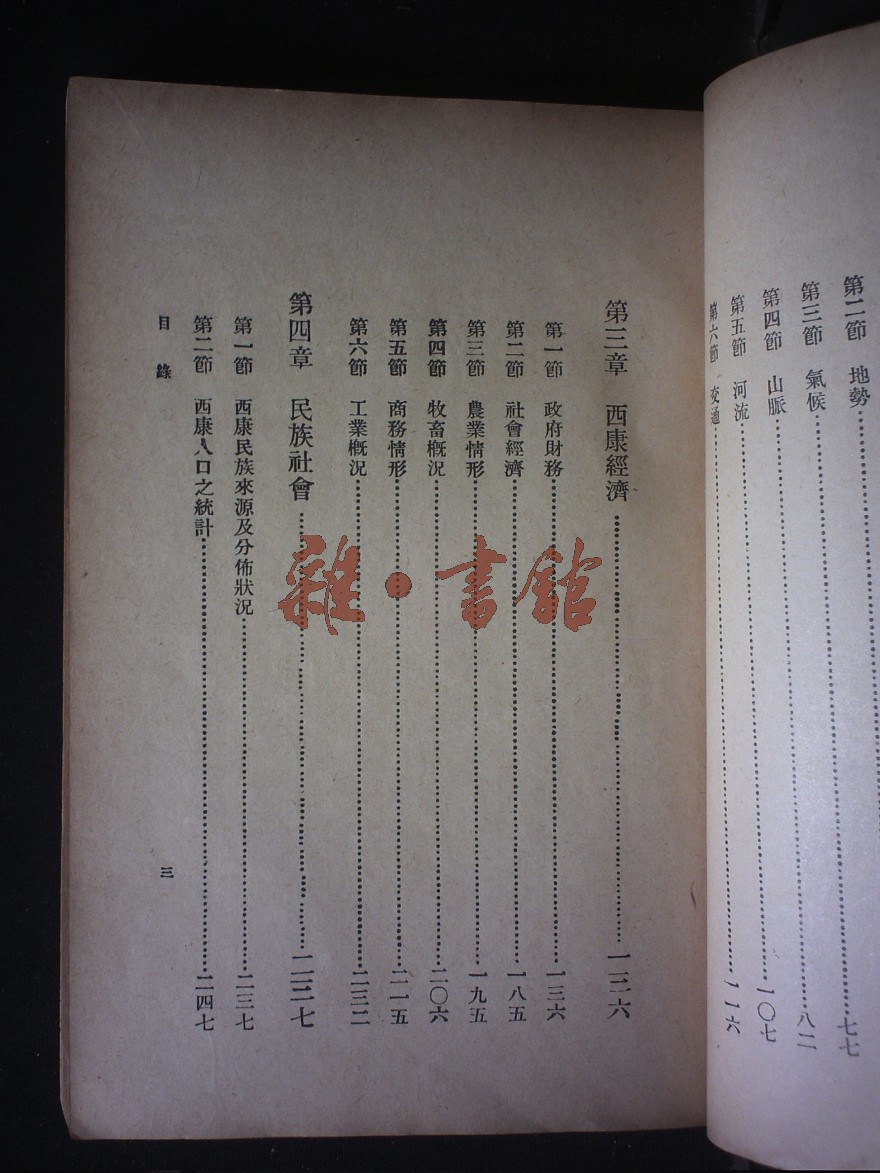 第二節 地勢……七七
第三節 氣候……八二
第四節 山脈……一〇七
第五節 河流……一一六
第六節 交通……
第三章 西康經濟……一三六
第一節 政府財務……一三六
第二節 社會經濟……一八五
第三節 農業情形……一九五
第四節 牧畜概況……二〇六
第五節 商務情形……二一五
第六節 工業概況……二三二
第四章 民族社會……二三七
第一節 西康民族來源及分佈狀況……二三七
第二節 西康人口之統計……二四七
目錄 三
雜·書館